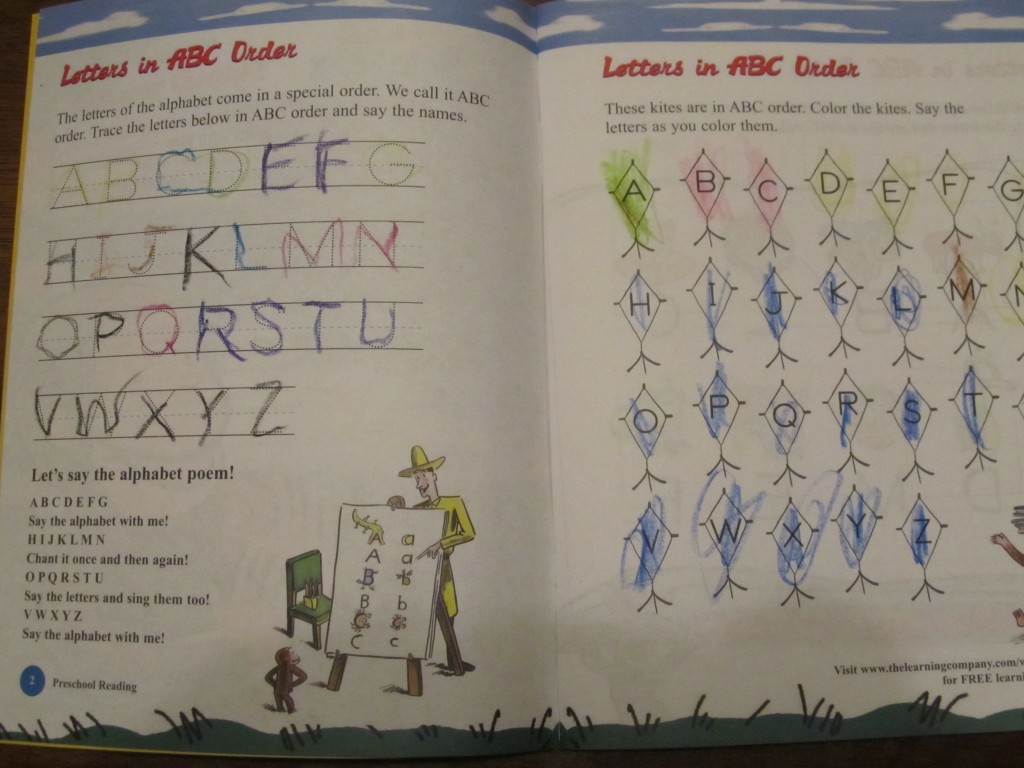 Letters in ABC Order
The letters of the alphabet come in a special order. We call it ABC
order. Trace the letters below in ABC order and say the names.
A B C D E F G
H I J K L M N
O P Q R S T U
V W X Y Z
Let's say the alphabet poem!
A B C D E F G
Say the alphabet with me!
H I J K L M N
Chant it once and then again!
O P Q R S T U
Say the letters and sing them too!
V W X Y Z
Say the alphabet with me!
A a
B b
B b
C c
2 Preschool Reading
Letters in ABC Order
These kites are in ABC order. Color the kites. Say the
letters as you color them.
A B C D E F G
H I J K L M N
O P Q R S T
V W X Y Z
Visit www.thelearningcompany.com/
for FREE